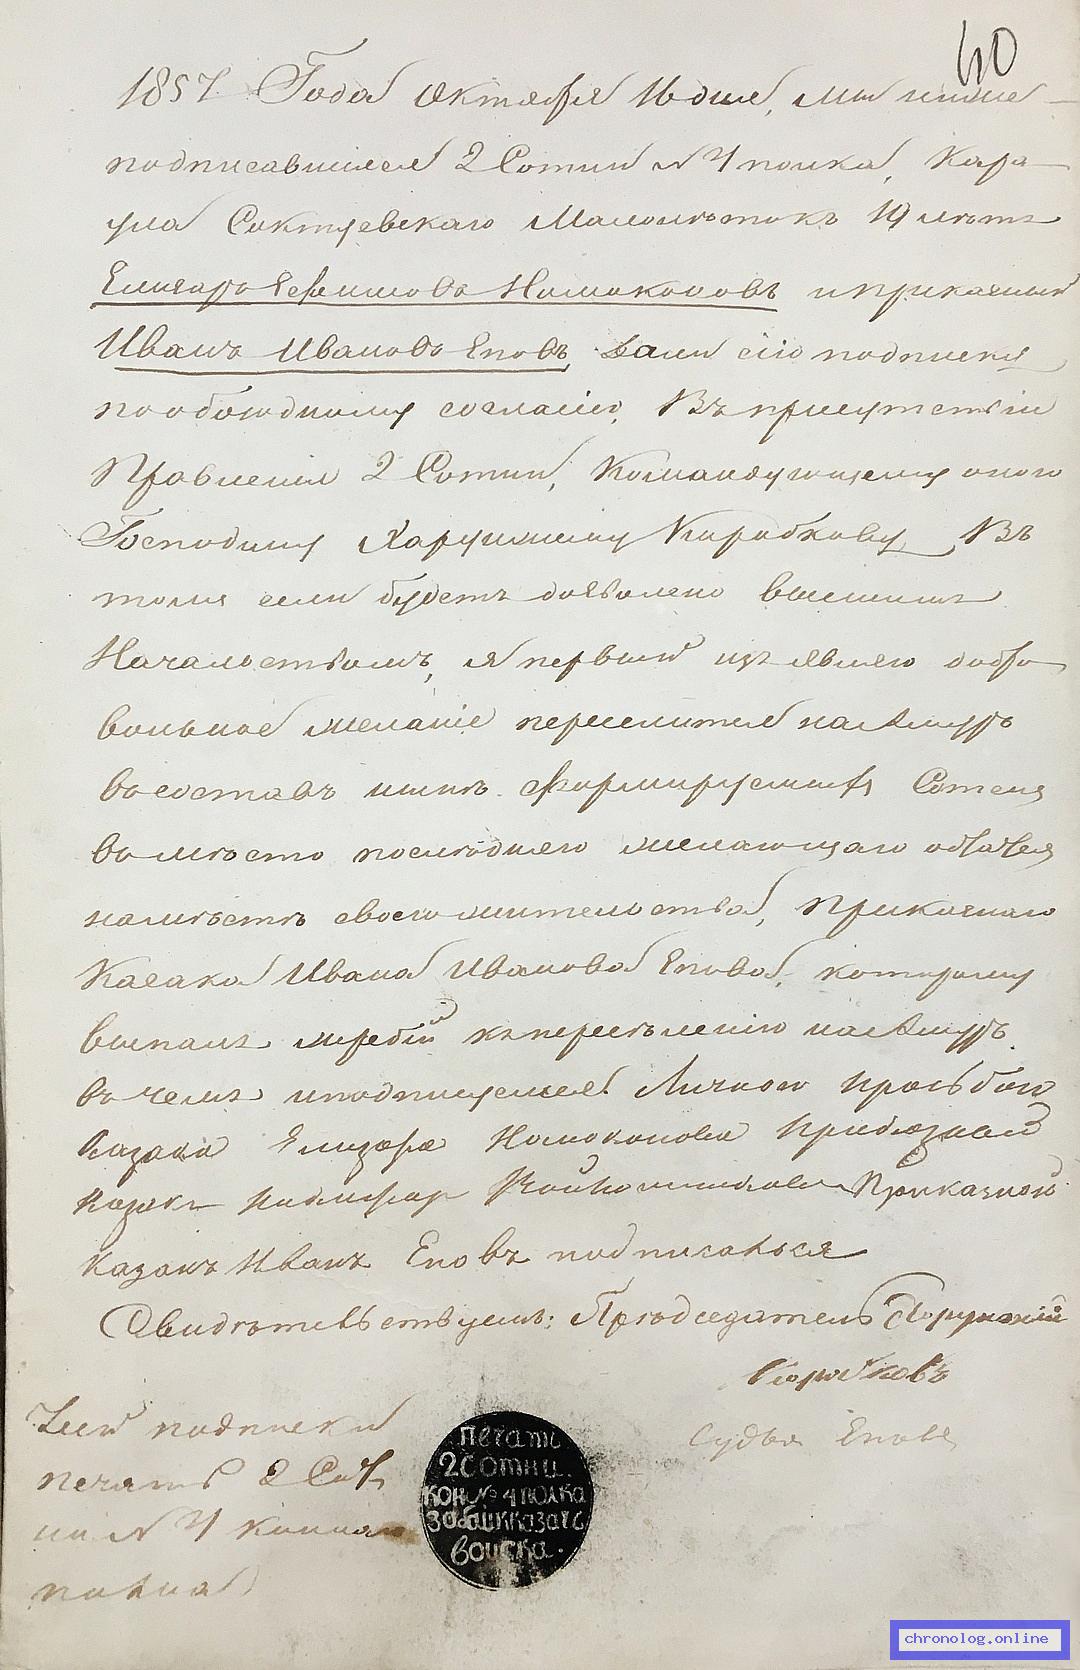 40
1857 Года Октября 16 дня, мы ниже
подписавшиеся 2 Сотни № 4 полка, Кара
ула Соктуевскаго Малолѣтокъ 19 лѣтъ
Елизаръ Номоконовъ и приказный
Иванъ Ивановъ Еповъ, дали сію подписку
по обоюдному согласію, Въ присутствіи
Правленія 2 Сотни, Командующему оною
Господину Хорунжему Коробкову, Въ
томъ если будетъ дозволено высшимъ
Начальствомъ, я первый изъявляю добро
вольное желаніе переселится на Амуръ
въ составъ нынѣ формируемыхъ Сотенъ
вомѣсто послѣдняго желающаго остатся
на мѣстѣ своего жительства, приказнаго
Казака Ивана Иванова Епова, которому
выпалъ жребій къ переселенію на Амуръ
въ чемъ и подписуемся. Личною прозьбою
Казака Елизара Номоконова
казакъ Приказной
казакъ Иванъ Еповъ подписалься
Свидѣтельствуемъ: Предсѣдатель Хорунжій
Коробковъ
Судья Еповъ
Къ сей подписки
печать 2 Сот
ни № 4 коннаго
полка
печать
2 сотни.
кон № 4 полка
забайк казачь
войска.
chronolog.online